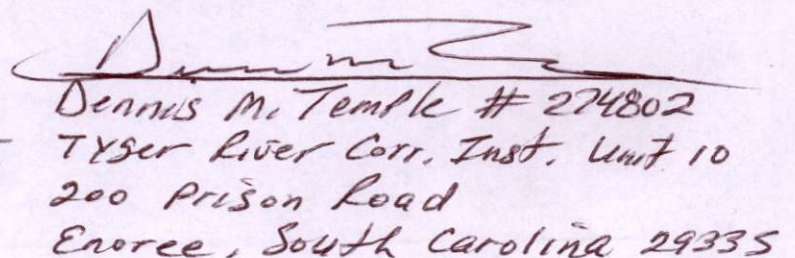 Dennis M. Temple # 274802
Tyger River Corr. Inst. Unit 10
200 Prison Road
Enoree, South Carolina 29335